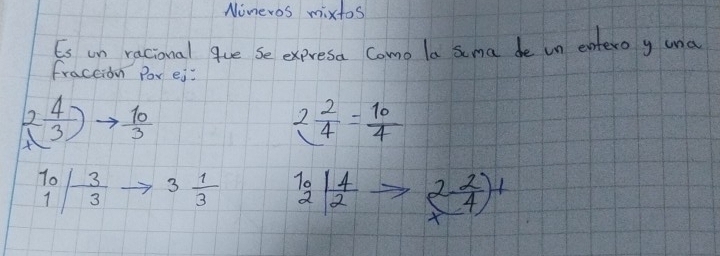 Números mixtos
Es un racional que se expresa como la suma de un entero y una
fracción Por ej:
2 4/3 ) → 10/3
x
2 2/4 = 10/4
10 | 3 → 3 1/3
1 3
10 | 4 → 2 2/4 ) +
2 2 x